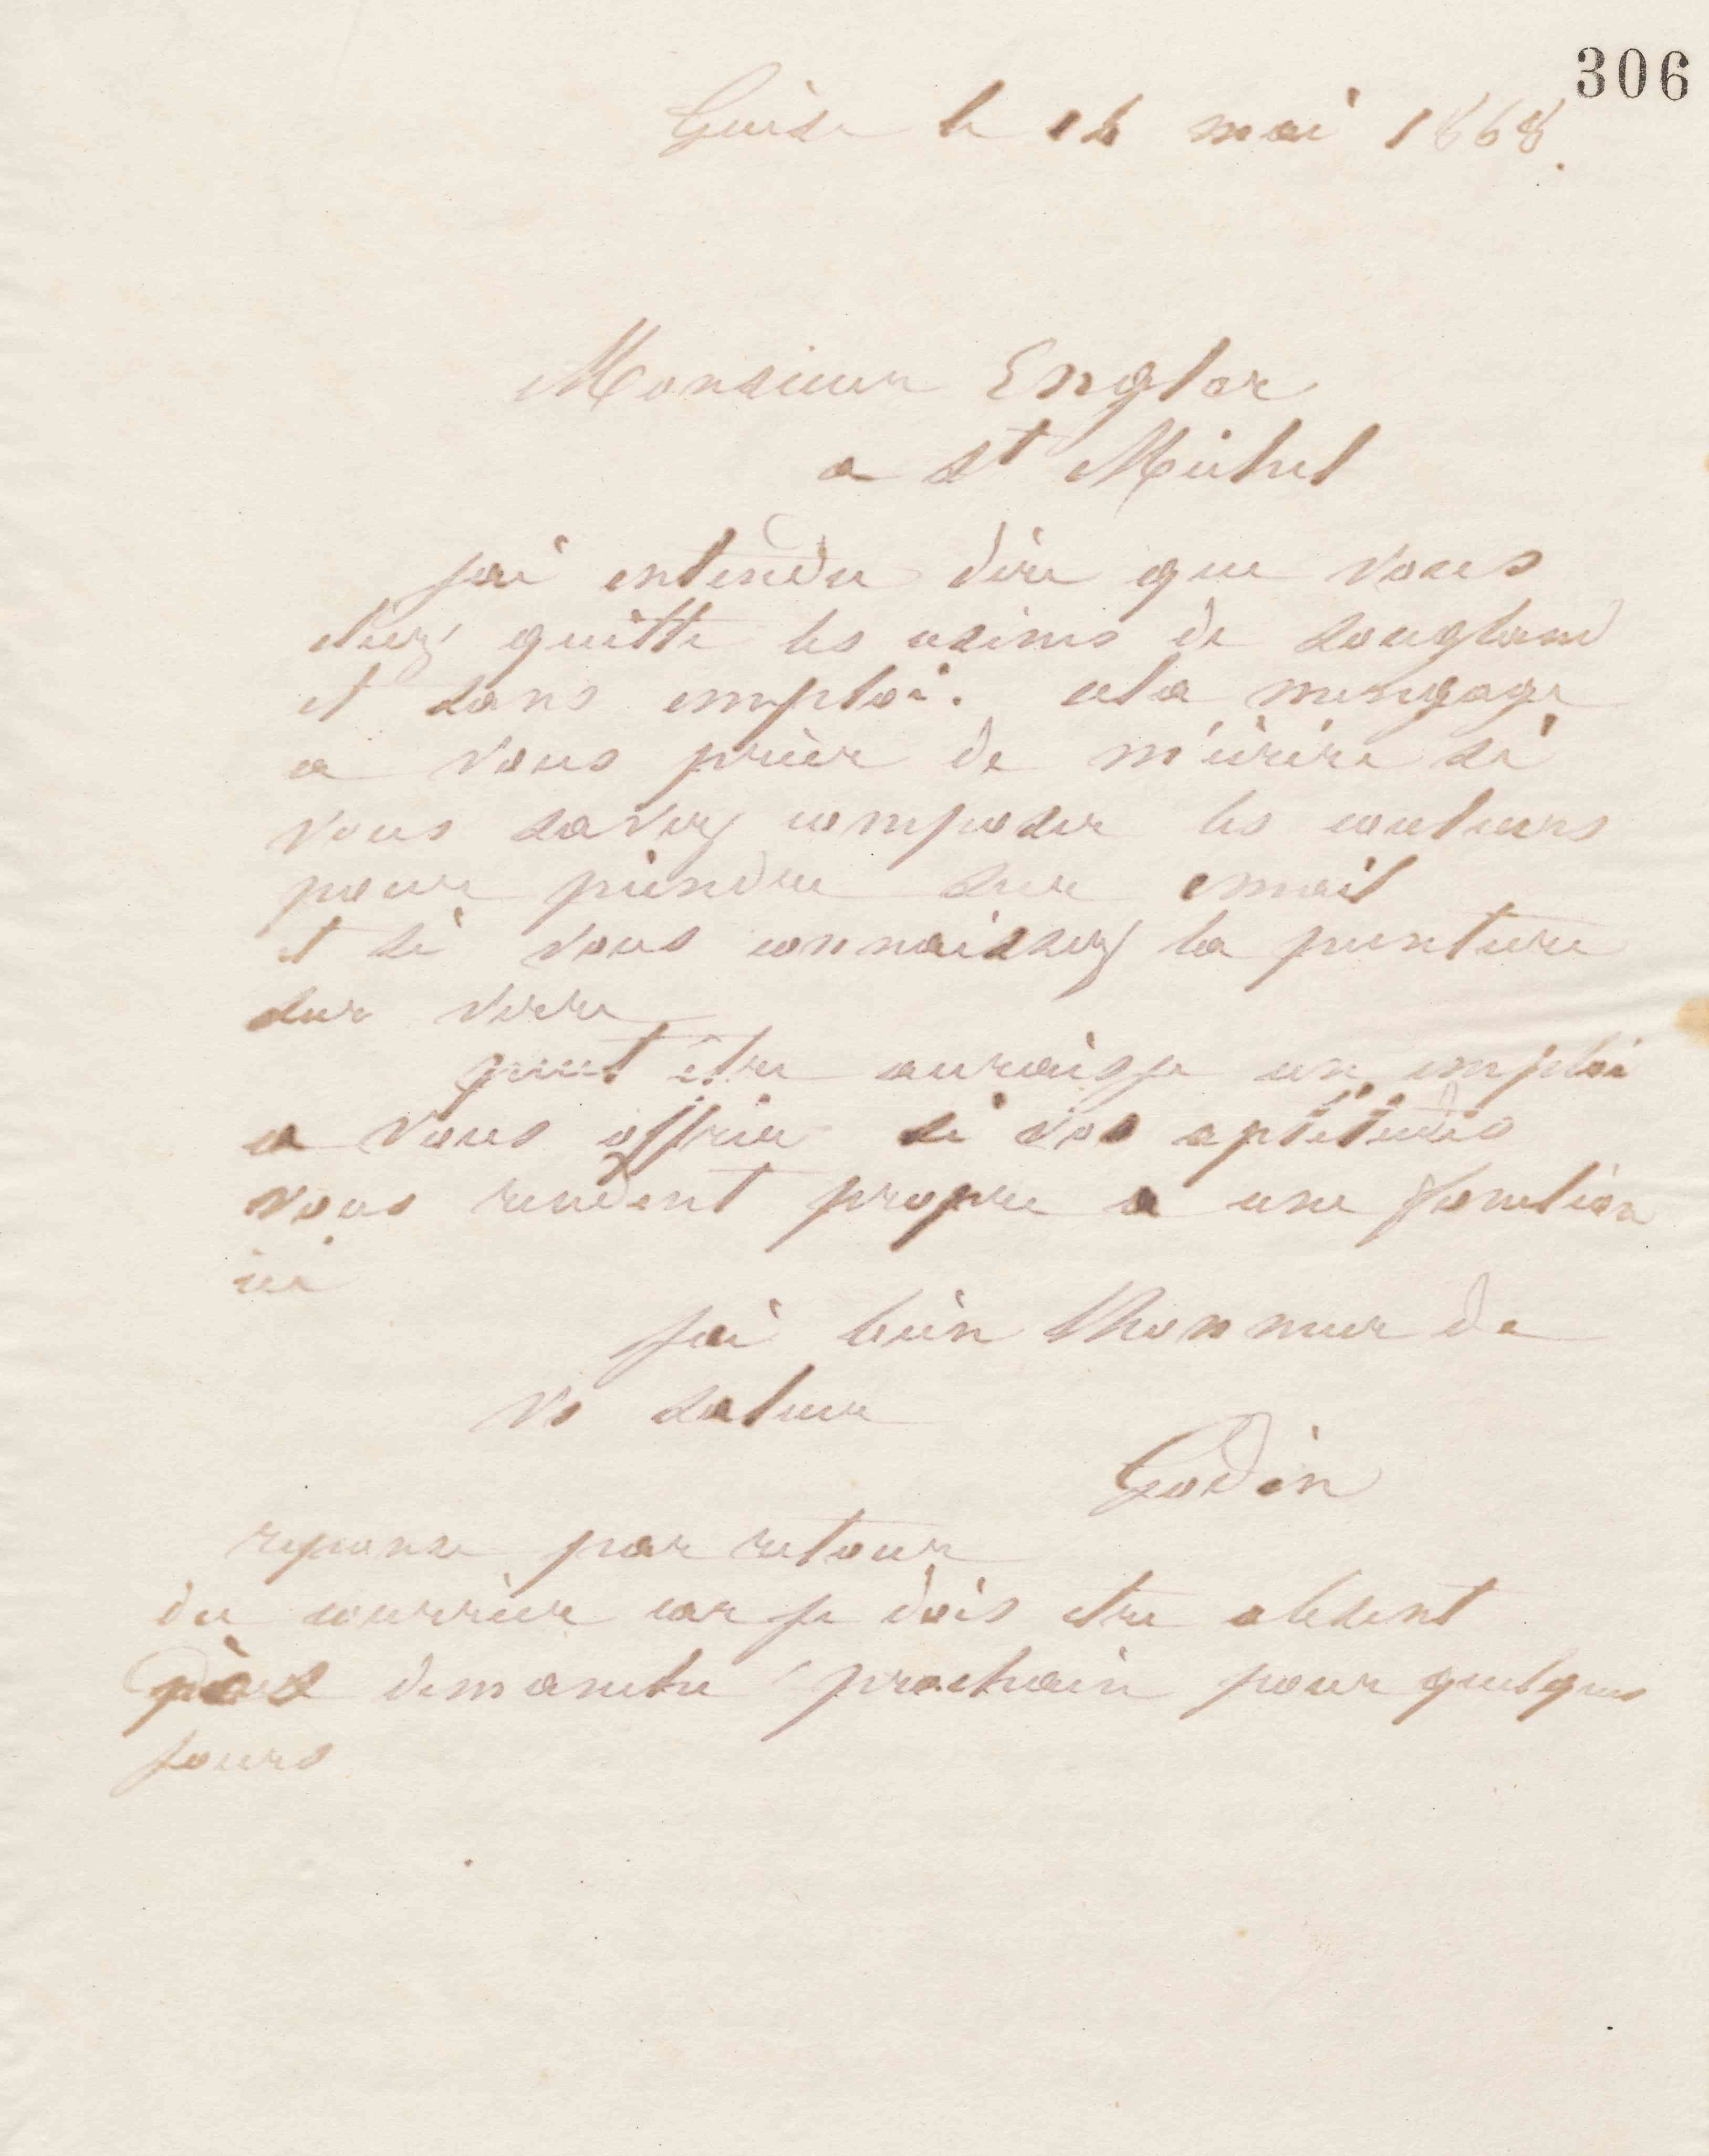 306
Guise le 16 mai 1868.
Monsieur Engler
a St Michel
j'ai entendu dire que vous
étiez quitte les usines de Sougland
et sans emploi. cela mengage
a vous prier de m'écrire si
vous savez composer les couleurs
pour peindre sur email
et si vous connaissez la peinture
sur verre
peut être auraisje un emploi
a vous offrir si vos aptitudes
vous rendent propre a une fonction
ici
jai bien lhonneur de
vs saluer
Godin
reponse par retour
du courrier car je dois etre absent
demanche prochain pour quelques
jours